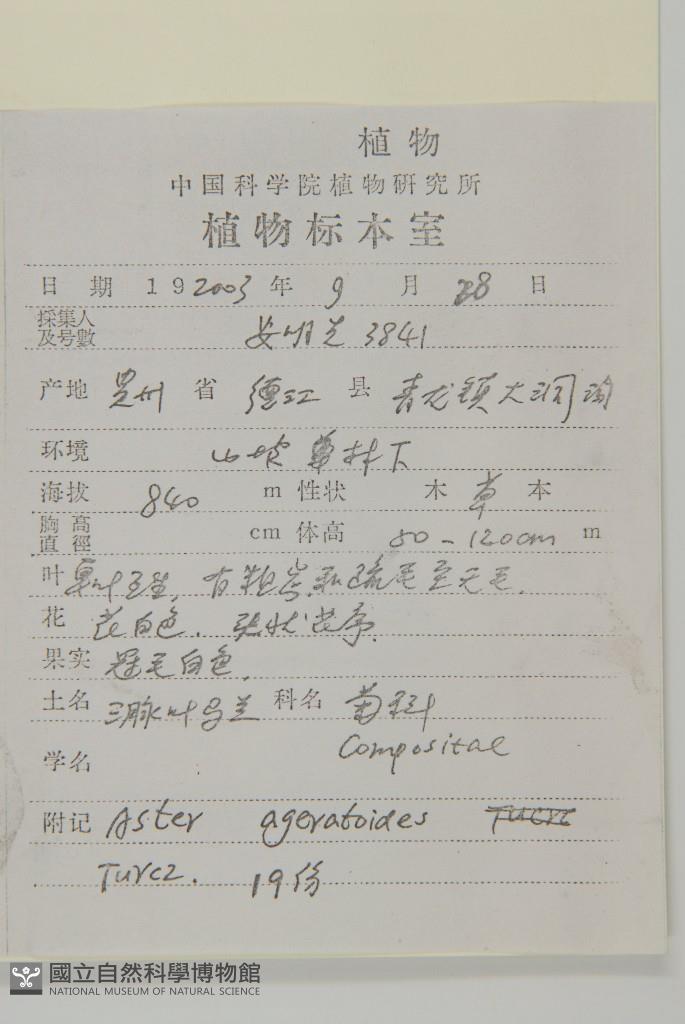 植物
中国科学院植物研究所
植物标本室
日期 192003年 9月 28日
採集人及号數 安明 3841
产地 贵州省 德江县 青龙镇大洞
环境 山坡 林下
海拔 840 m 性状 木草本
胸高直徑 cm 体高 80-120cm m
叶 单叶互生,有粗 疏毛至无毛.
花 花白色. 花序.
果实 冠毛白色.
土名 三脉叶马兰 科名 菊科
学名 Compositae
附记 Aster ageratoides Turcz
Turcz. 19份
國立自然科學博物館
NATIONAL MUSEUM OF NATURAL SCIENCE